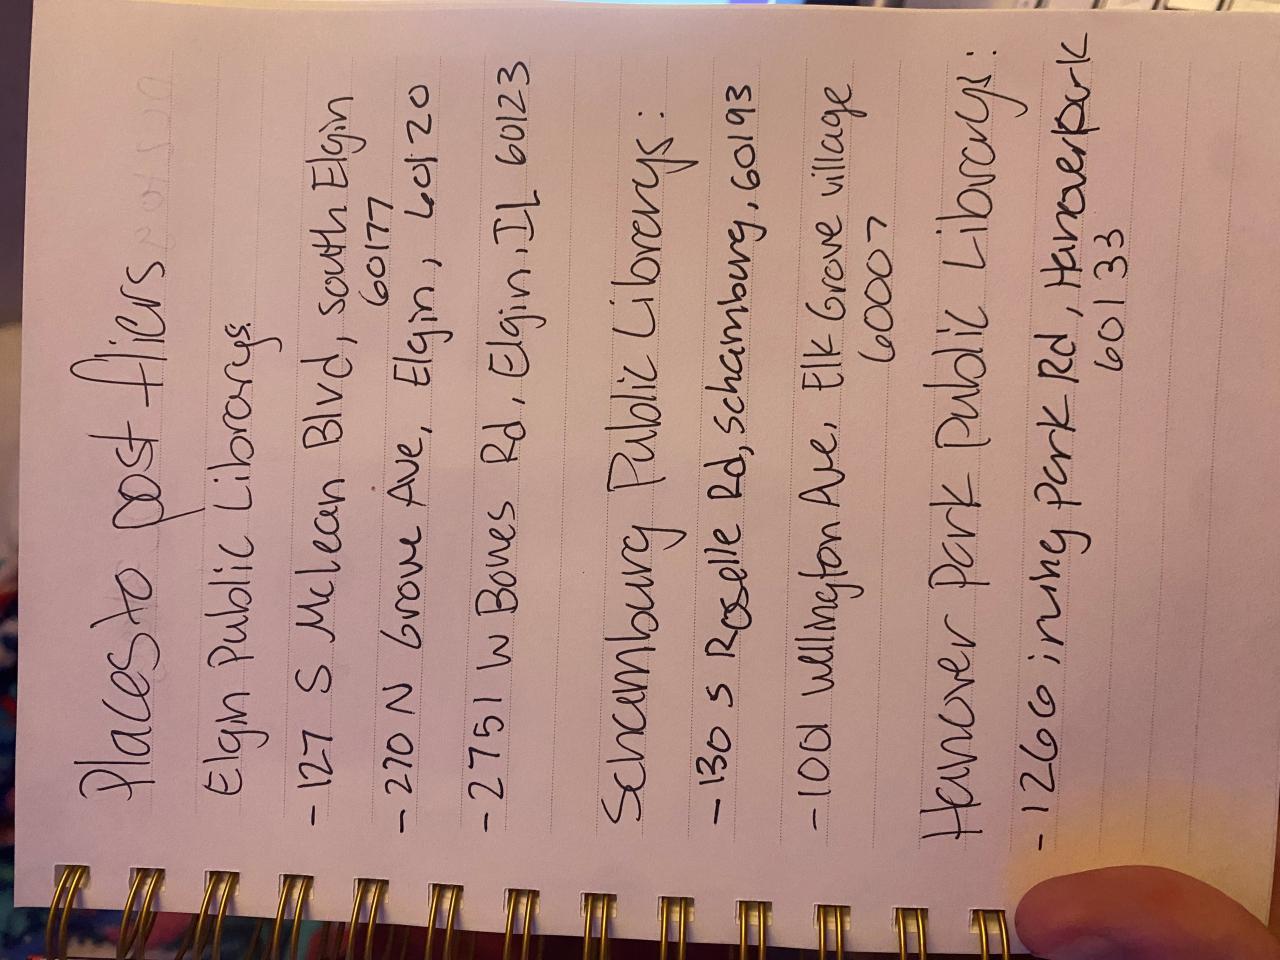 Places to post fliers
Elgin Public Librarys:
- 127 S Mclean Blvd, south Elgin
60177
- 270 N Grove Ave, Elgin, 60120
- 2751 W Bowes Rd, Elgin, IL 60123
Schaumburg Public Librarys:
- 130 S Roselle Rd, Schaumburg, 60193
- 1001 Wellington Ave, Elk Grove village
60007
Hanover Park Public Librarys:
- 1266 irving park Rd, Hanoverpark
60133